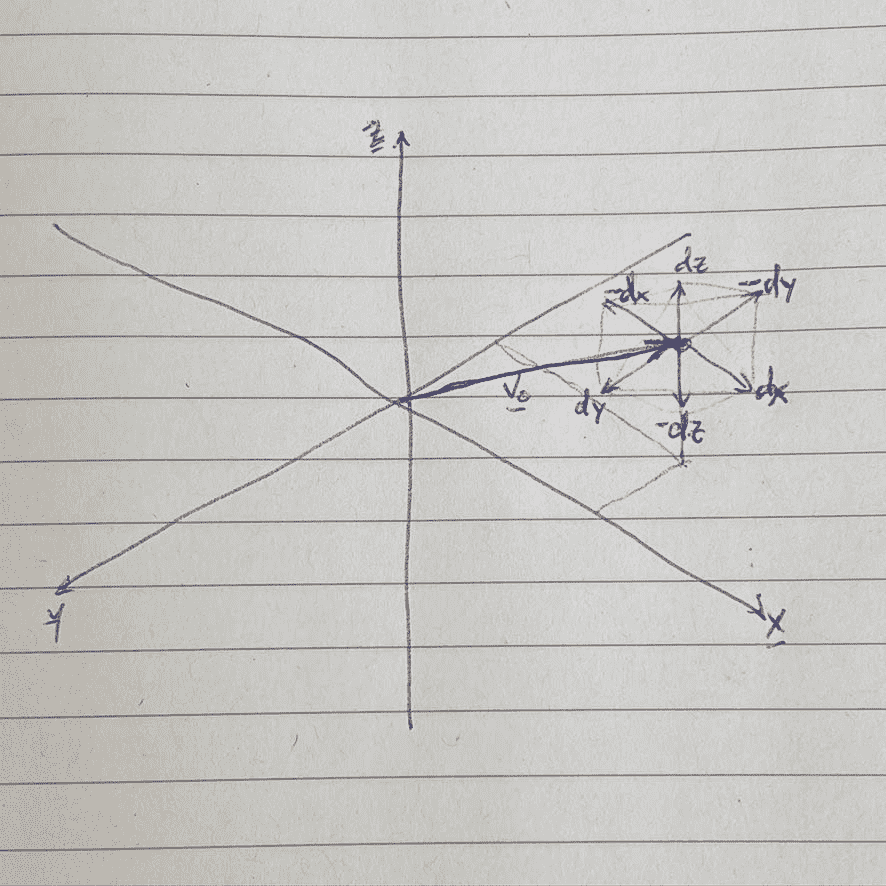 z
dz
-dx
-dy
V₀
dy
dx
-dz
Y
X